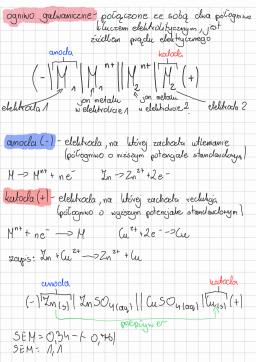 ogniwo galwaniczne - połączone ze sobą dwa półogniwa
kluczem elektrolitycznym, jest
źródłem prądu elektrycznego
anoda katoda
(-) M₁ | M₁ⁿ⁺ || M₂ⁿ⁺ | M₂ (+)
elektroda 1 jon metalu w elektrolicie 1 jon metalu w elektrodzie 2 elektroda 2
anoda (-) - elektroda, na której zachodzi utlenianie
(półogniwo o niższym potencjale standardowym)
M → Mⁿ⁺ + ne⁻ Zn → Zn²⁺ + 2e⁻
katoda (+) - elektroda, na której zachodzi redukcja
(półogniwo o wyższym potencjale standardowym)
Mⁿ⁺ + ne⁻ → M Cu²⁺ + 2e⁻ → Cu
zapis: Zn + Cu²⁺ → Zn²⁺ + Cu
anoda katoda
(-) Zn(s) | ZnSO₄(aq) || CuSO₄(aq) | Cu(s) (+)
przepływ e⁻
SEM = 0,34 - (-0,76)
SEM = 1,1